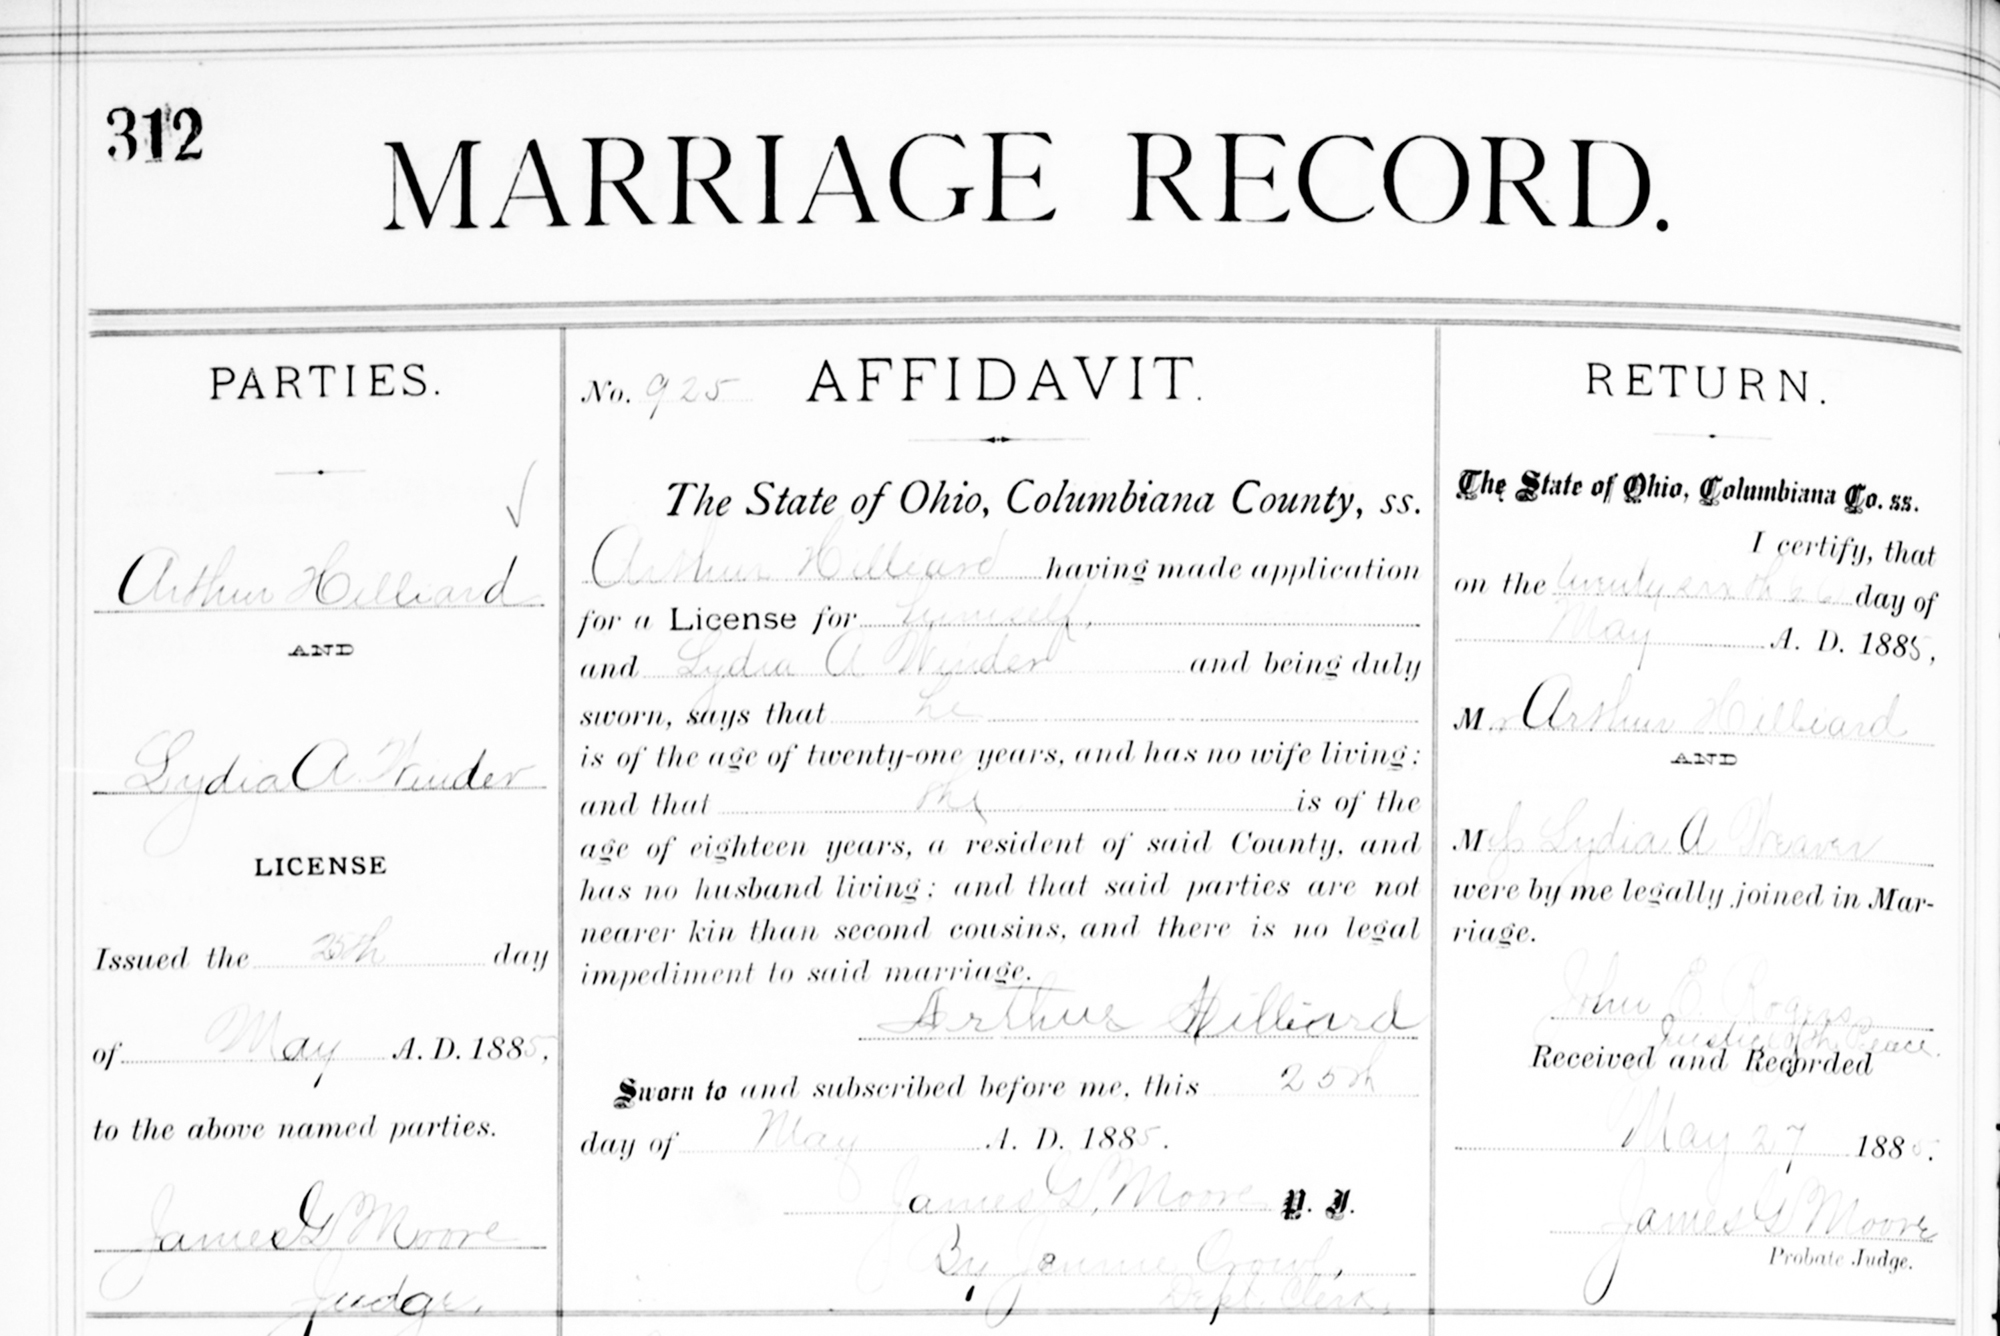 312
MARRIAGE RECORD.
PARTIES.
Arthur Hilliard
AND
Lydia A Winder
LICENSE
Issued the 25th day
of May A. D. 1885,
to the above named parties.
James G Moore
Judge.
No. 925 AFFIDAVIT.
The State of Ohio, Columbiana County, ss.
Arthur Hilliard having made application
for a License for himself,
and Lydia A Winder and being duly
sworn, says that he
is of the age of twenty-one years, and has no wife living;
and that she is of the
age of eighteen years, a resident of said County, and
has no husband living; and that said parties are not
nearer kin than second cousins, and there is no legal
impediment to said marriage.
Arthur Hilliard
Sworn to and subscribed before me, this 25th
day of May A. D. 1885.
James G. Moore P. J.
By Jennie Crowl,
Dept. Clerk.
RETURN.
The State of Ohio, Columbiana Co. ss.
I certify, that
on the twenty sixth 26 day of
May A. D. 1885,
Mr Arthur Hilliard
AND
Miss Lydia A Weaver
were by me legally joined in Mar-
riage.
John E. Rogers
Justice of the Peace.
Received and Recorded
May 27 1885.
James G Moore
Probate Judge.